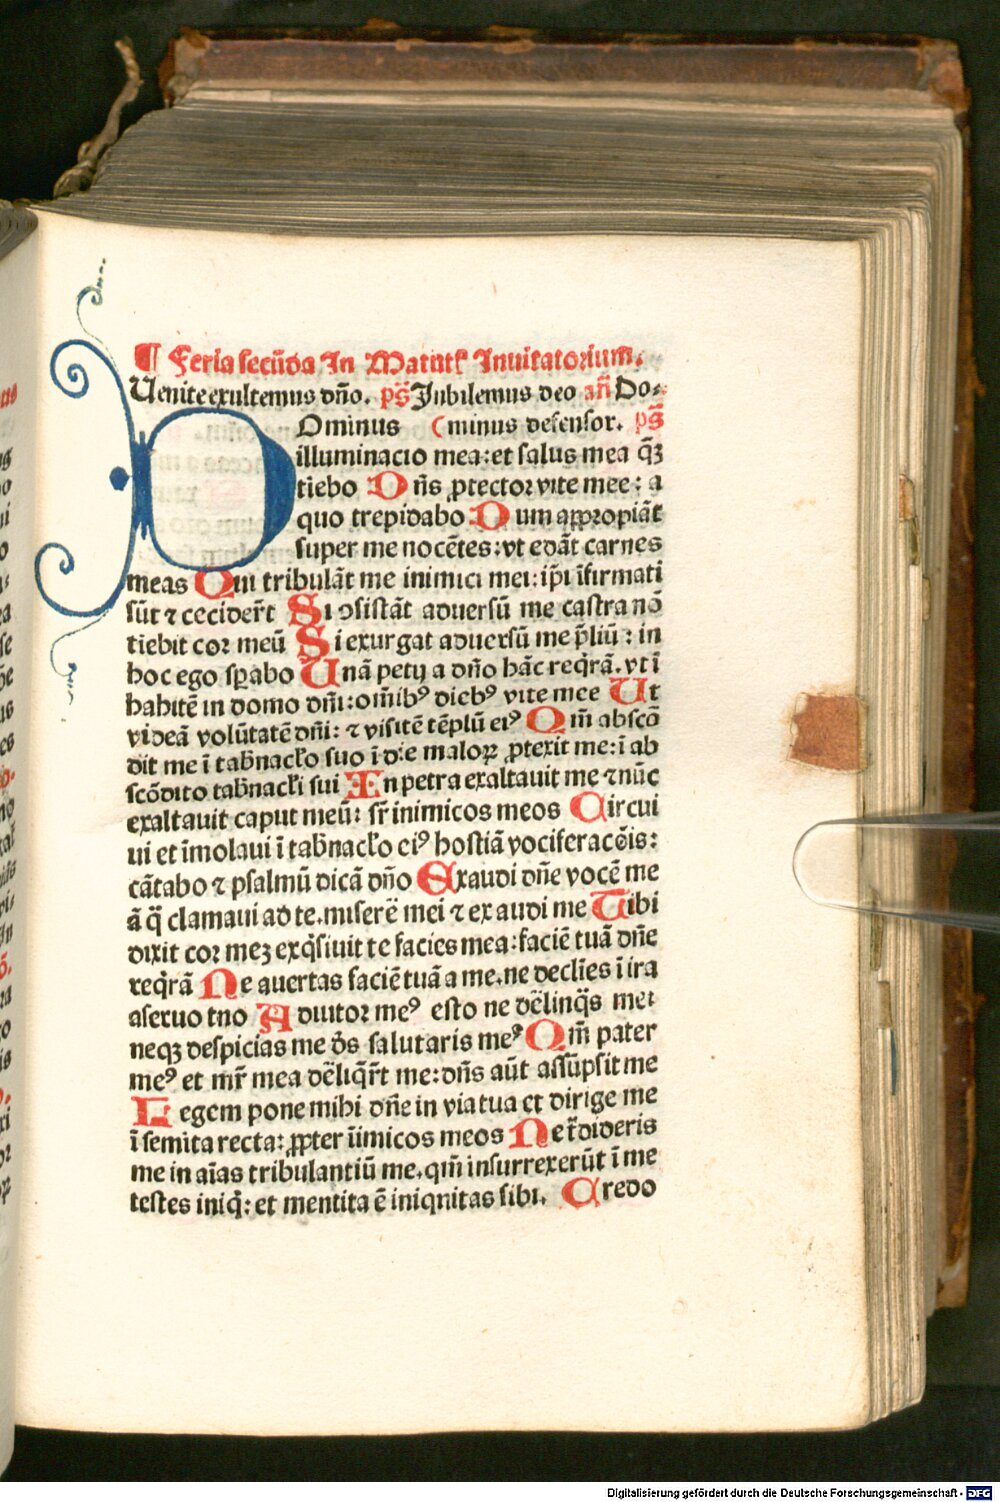 ¶ Feria secūda In Matutꝭ Inuitatorium.
Uenite exultemus dño. ps̄ Jubilemus deo añ Do-
Ominus (minus defensor. ps̄
illuminacio mea: et salus mea q̄ꝫ
tiebo Dñs ꝓtector vite mee: a
quo trepidabo Dum aꝓpropiāt
super me nocētes: vt edāt carnes
meas Qui tribulāt me inimici mei: ip̄i īfirmati
sūt ⁊ cecider̄t Si ↄsistāt aduersū me castra nō
tiebit cor meū Si exurgat aduersū me p̄liū: in
hoc ego sꝑabo Unā petij a dño hāc req̄rā. vt ī
habitē in domo dñi: om̄ibꝰ diebꝰ vite mee Ut
videā volūtatē dñi: ⁊ visitē tēplū eiꝰ Qm̄ abscō
dit me ī tab̄nacło suo ī die maloꝝ ꝓtexit me: ī ab
scōdito tab̄nacłi sui In petra exaltauit me ⁊ nūc
exaltauit caput meū: sr̄ inimicos meos Circui
ui et īmolaui ī tab̄nacło eiꝰ hostiā vociferacōis:
cātabo ⁊ psalmū dicā dño Exaudi dñe vocē me
ā q̄ clamaui ad te. miserē mei ⁊ exaudi me Tibi
dixit cor meꝫ exq̄siuit te facies mea: faciē tuā dñe
req̄rā Ne auertas faciē tuā a me. ne declīes ī ira
a seruo tuo Adiutor meꝰ esto ne dēlinq̄s mei
neqꝫ despicias me dꝰs salutaris meꝰ Qm̄ pater
meꝰ et mr̄ mea dēliq̄r̄t me: dñs aūt assūpsit me
Legem pone mihi dñe in via tua et dirige me
ī semita recta: ꝓpter iīmicos meos Ne t̄dideris
me in aīas tribulantiū me. qm̄ insurrexerūt ī me
testes iniq̄: et mentita ē iniquitas sibi. Credo
Digitalisierung gefördert durch die Deutsche Forschungsgemeinschaft - DFG